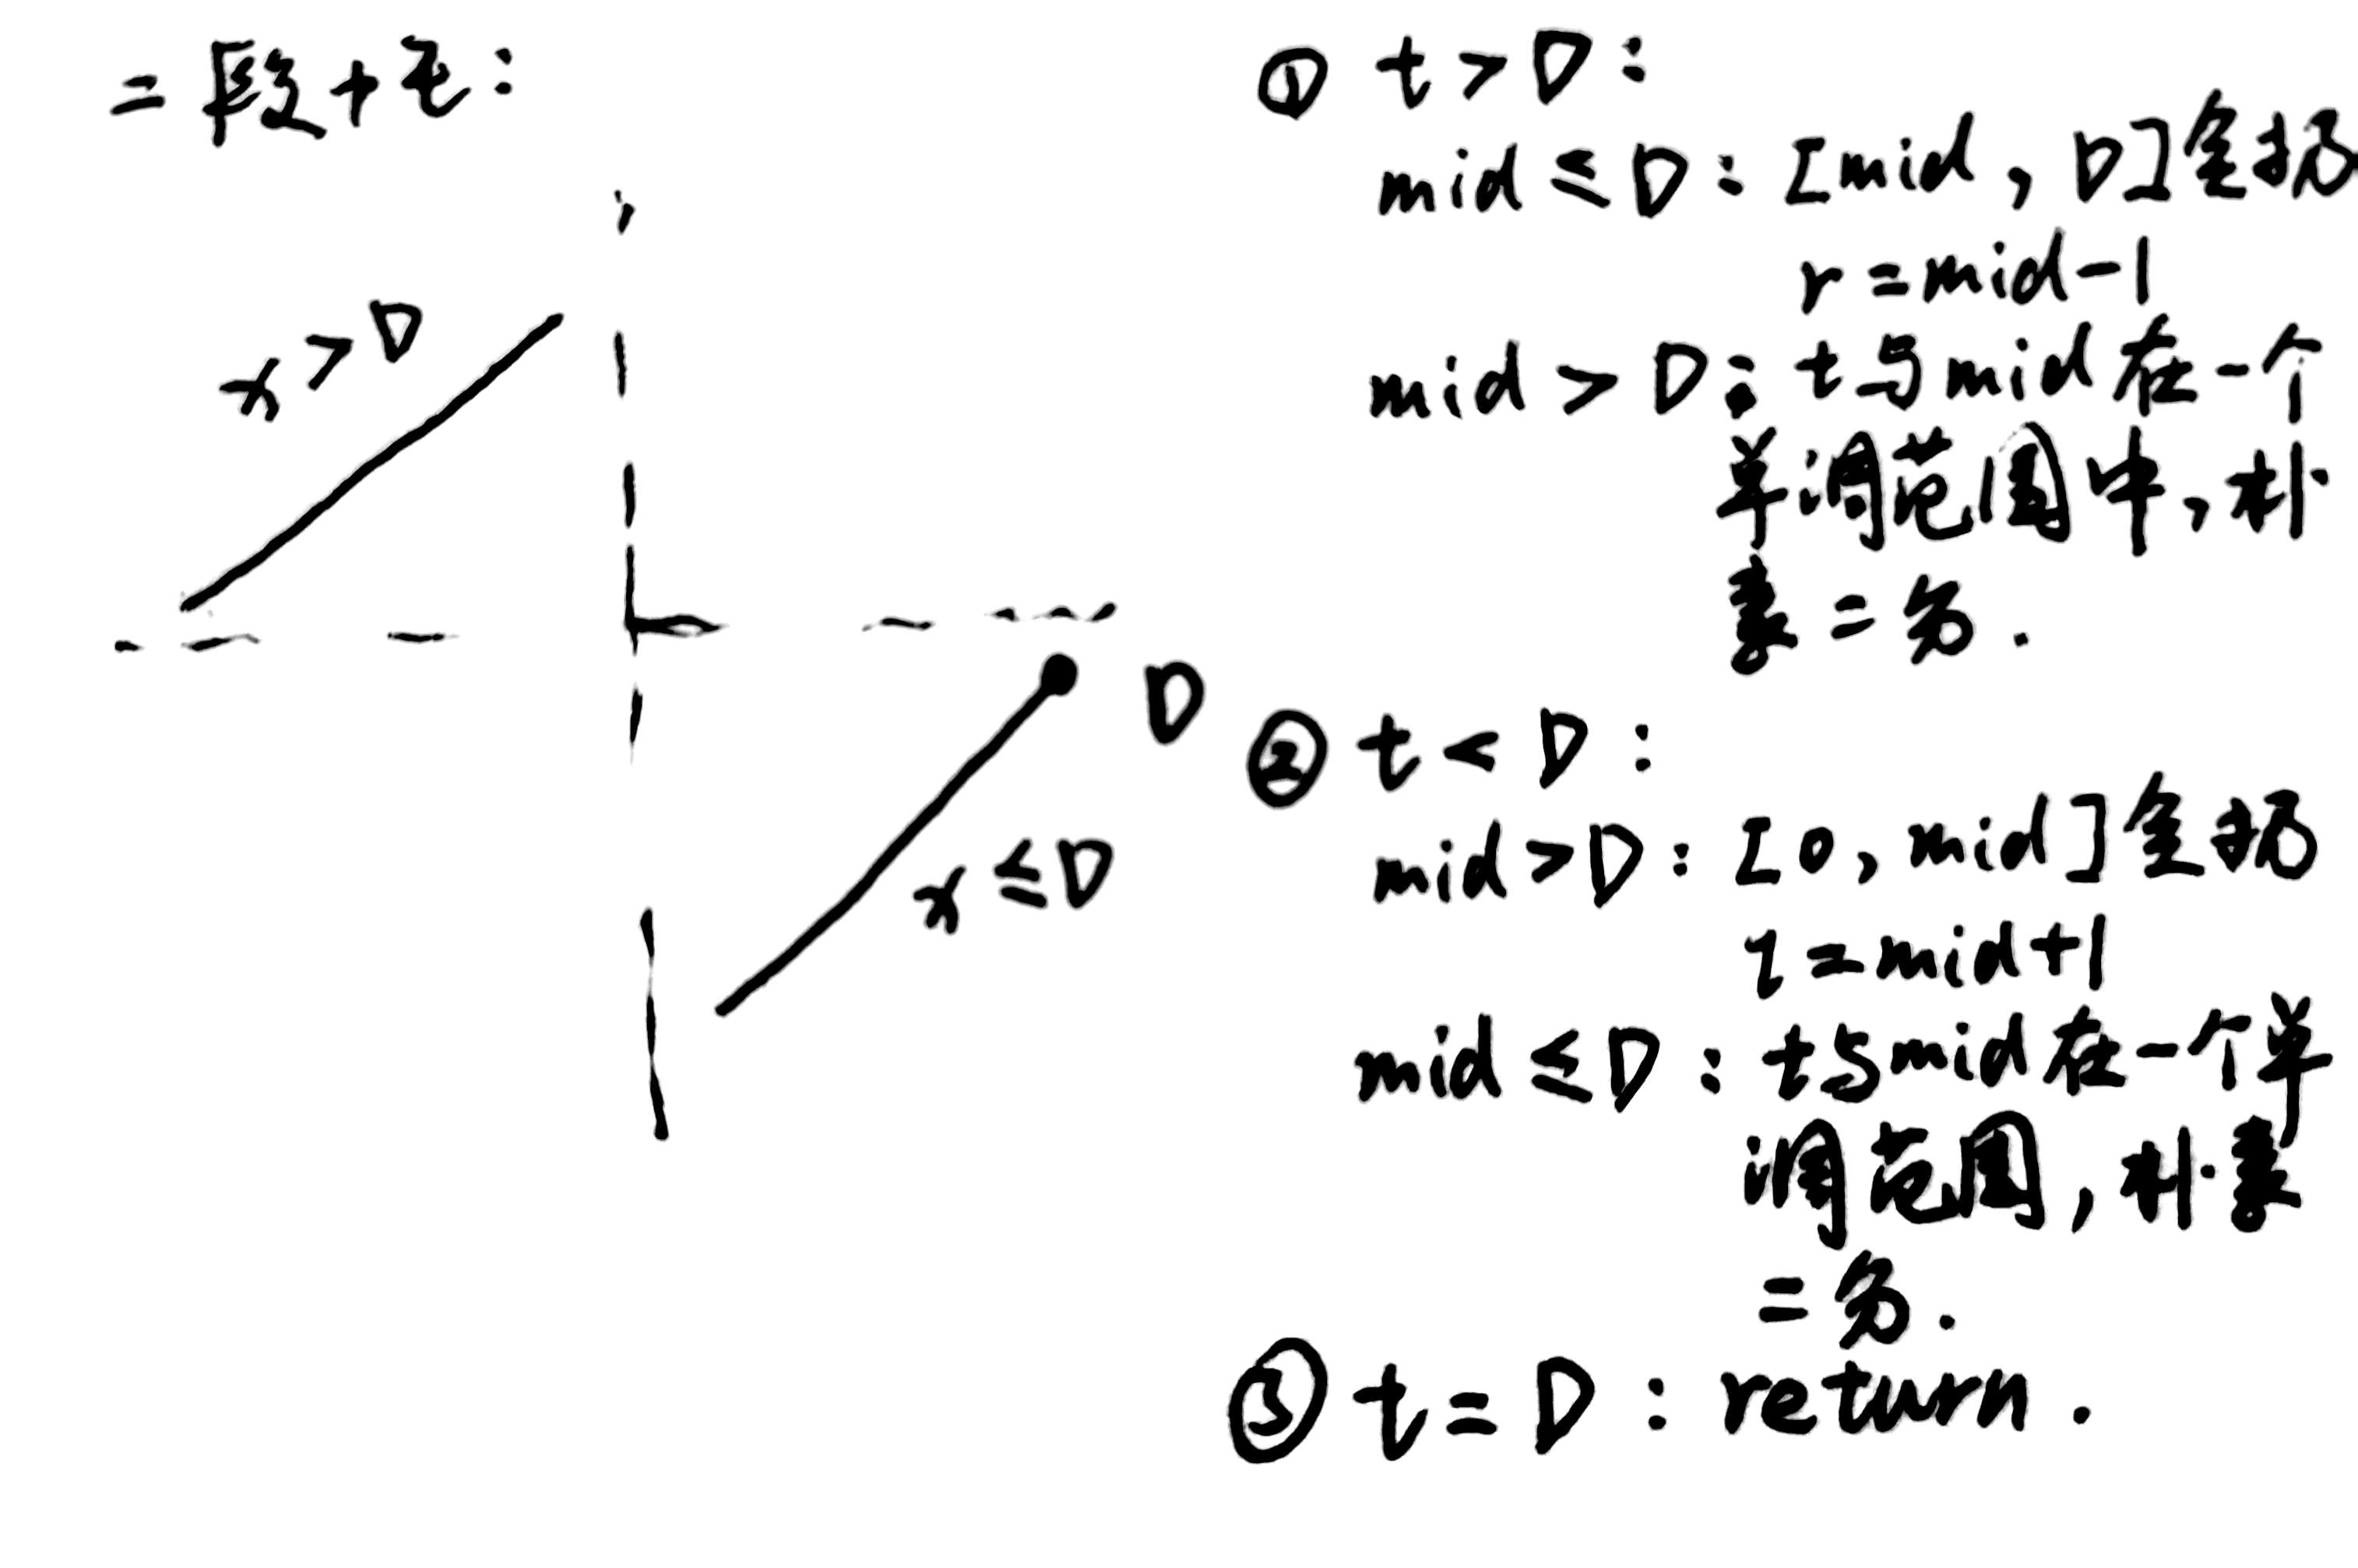 二段性:
x > D
D
x ≤ D
① t > D:
mid ≤ D: [mid, D]全扔
r = mid-1
mid > D: t与mid在一个
单调范围中,朴
素二分.
② t < D:
mid > D: [0, mid]全扔
l = mid+1
mid ≤ D: t与mid在一个单
调范围,朴素
二分.
③ t = D: return.